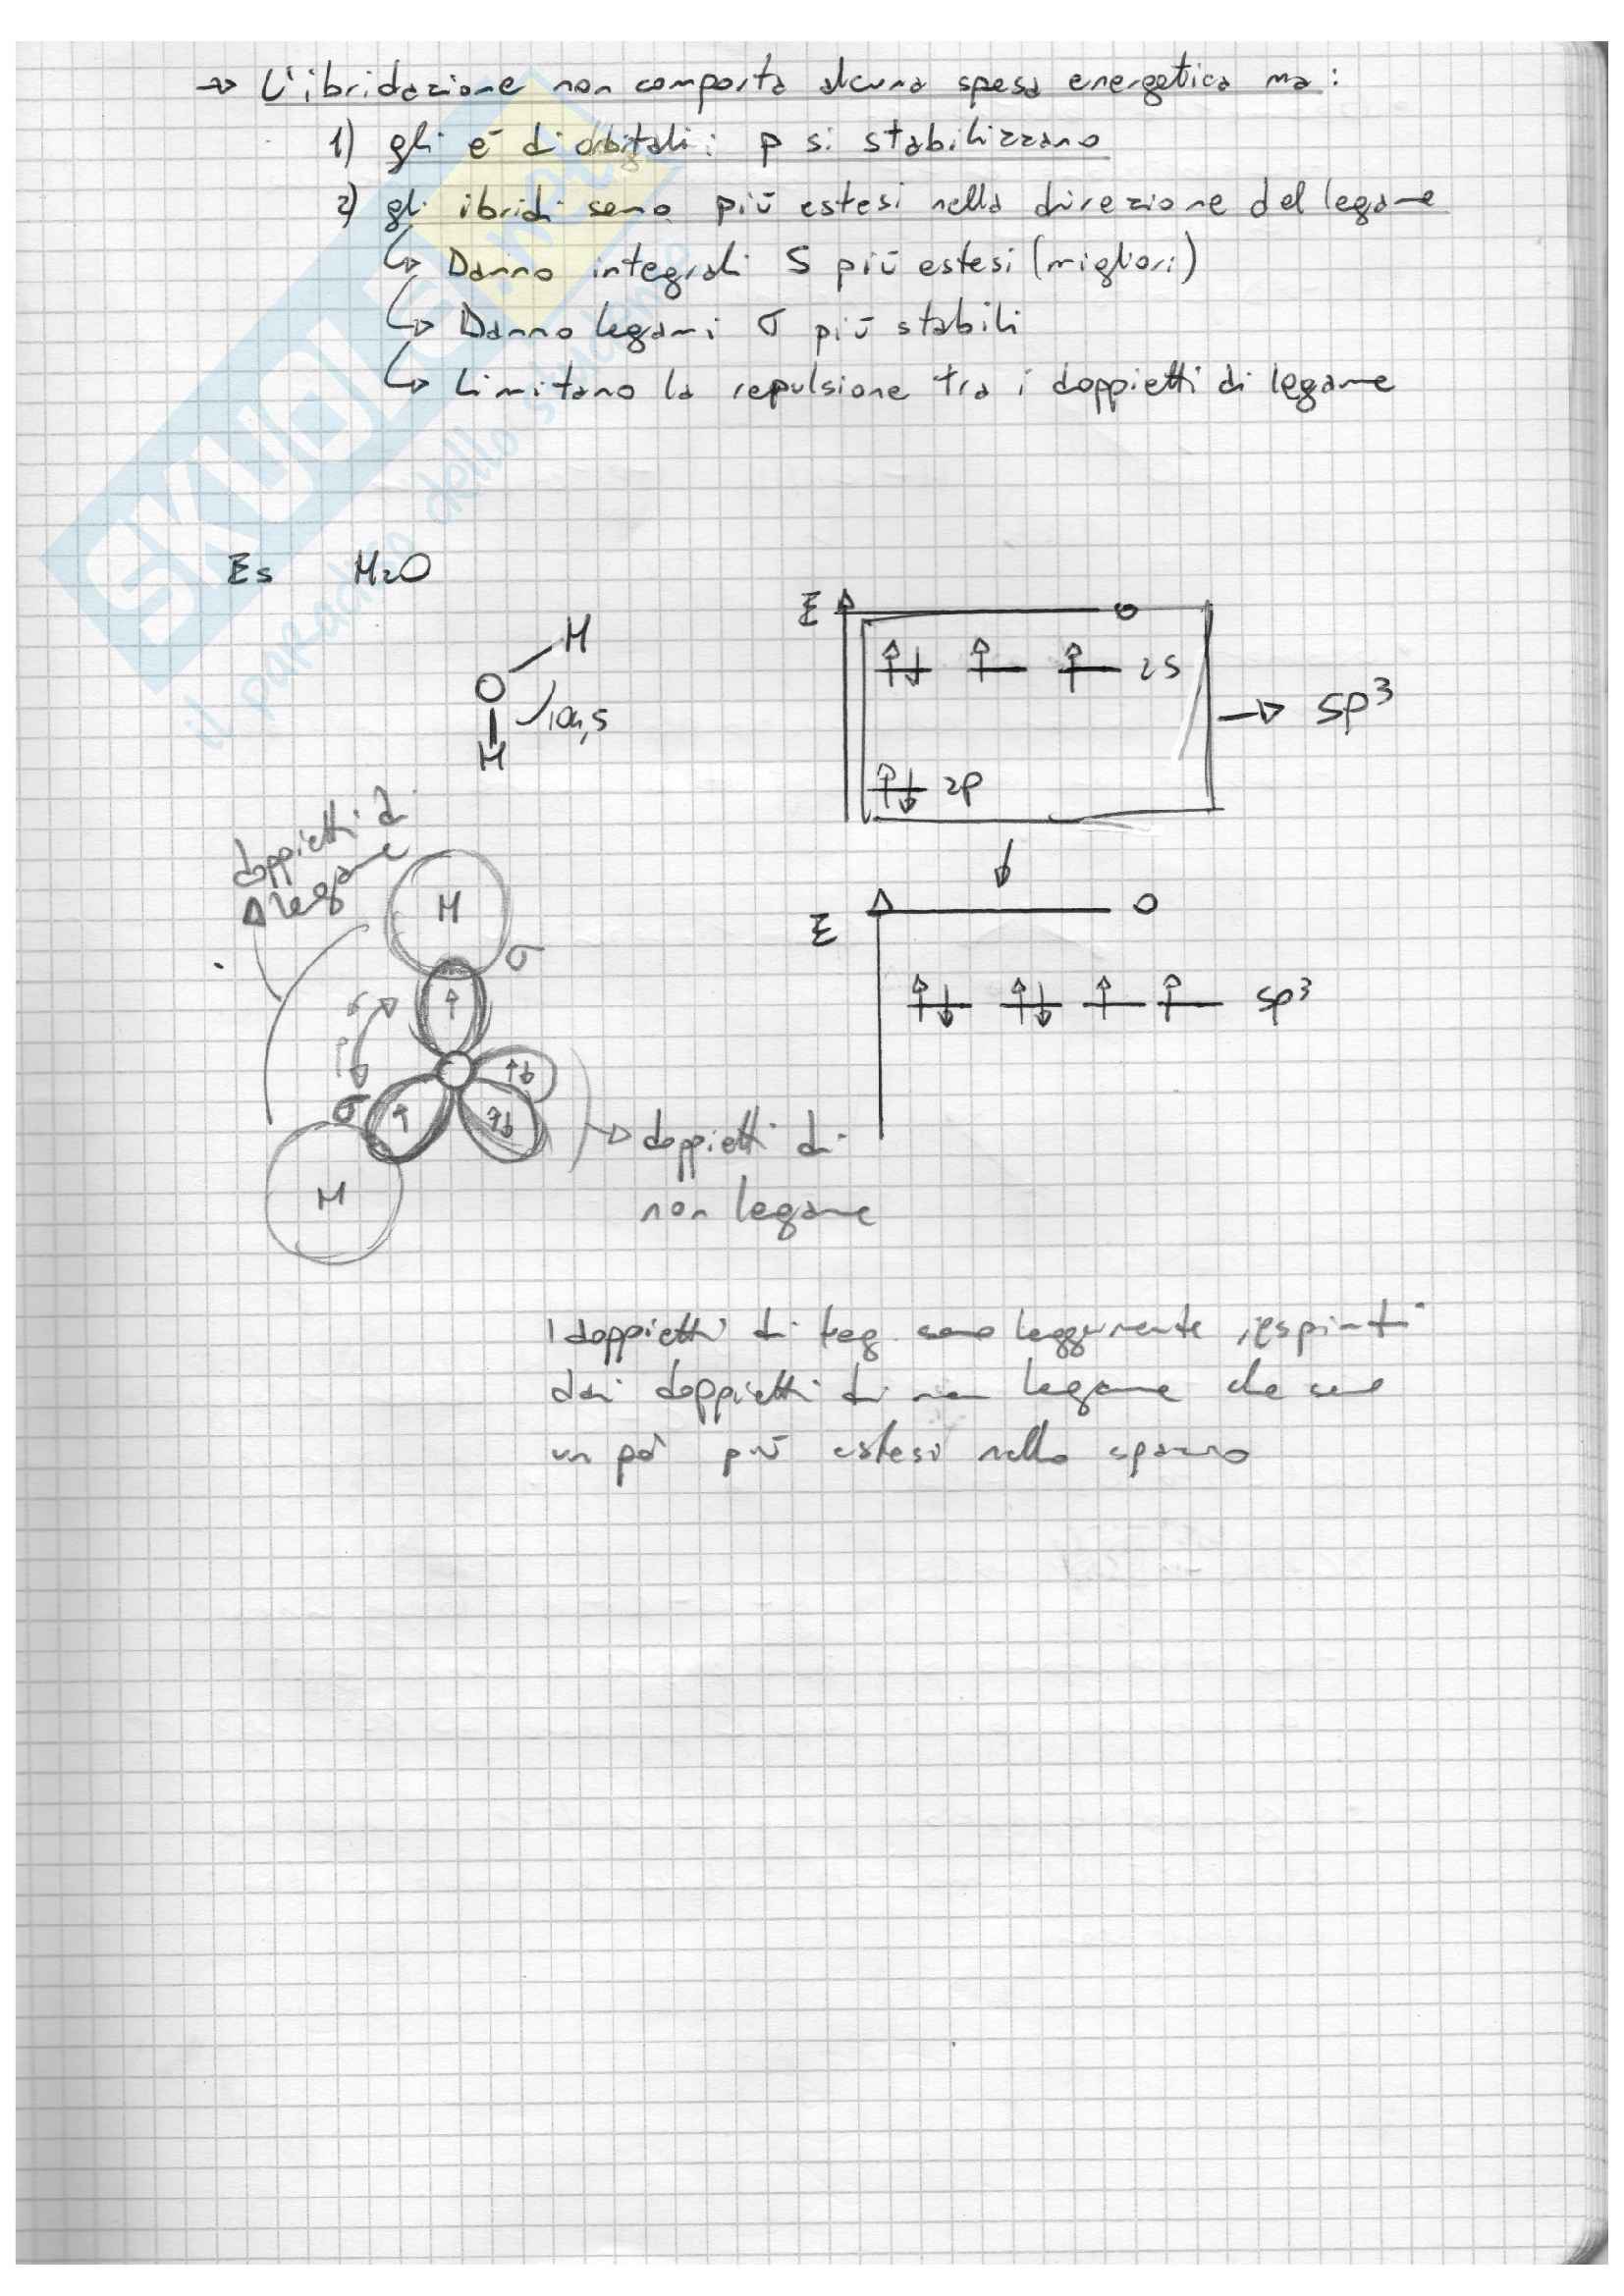 → L'ibridazione non comporta alcuna spesa energetica ma:
1) gli e⁻ di orbitali p si stabilizzano
2) gli ibridi sono più estesi nella direzione del legame
↳ Danno integrali S più estesi (migliori)
↳ Danno legami σ più stabili
↳ Limitano la repulsione tra i doppietti di legame
SKUOLA.net
il paradiso dello studente
Es H₂O
H
O
104,5
H
E
0
2s
→ sp³
2p
doppietti di
legame
H
σ
E
0
sp³
σ
H
doppietti di
non legame
I doppietti di leg. sono leggermente respinti
dai doppietti di non legame che sono
un pò più estesi nello spazio